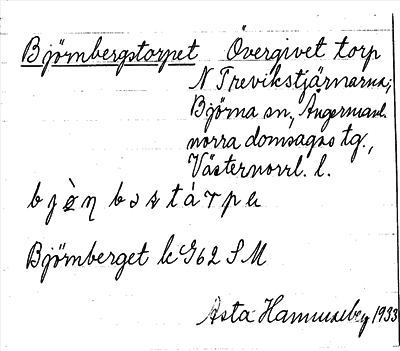 Björnbergstorpet Övergivet torp
N Trevikstjärnarna,
Björna sn., Ångermanl.
norra domsagas tg.,
Västernorrl. l.
bjὸ̀ŋ bɔstárpɐ
Björnberget lc G62 SM
Asta Hammarberg 1933